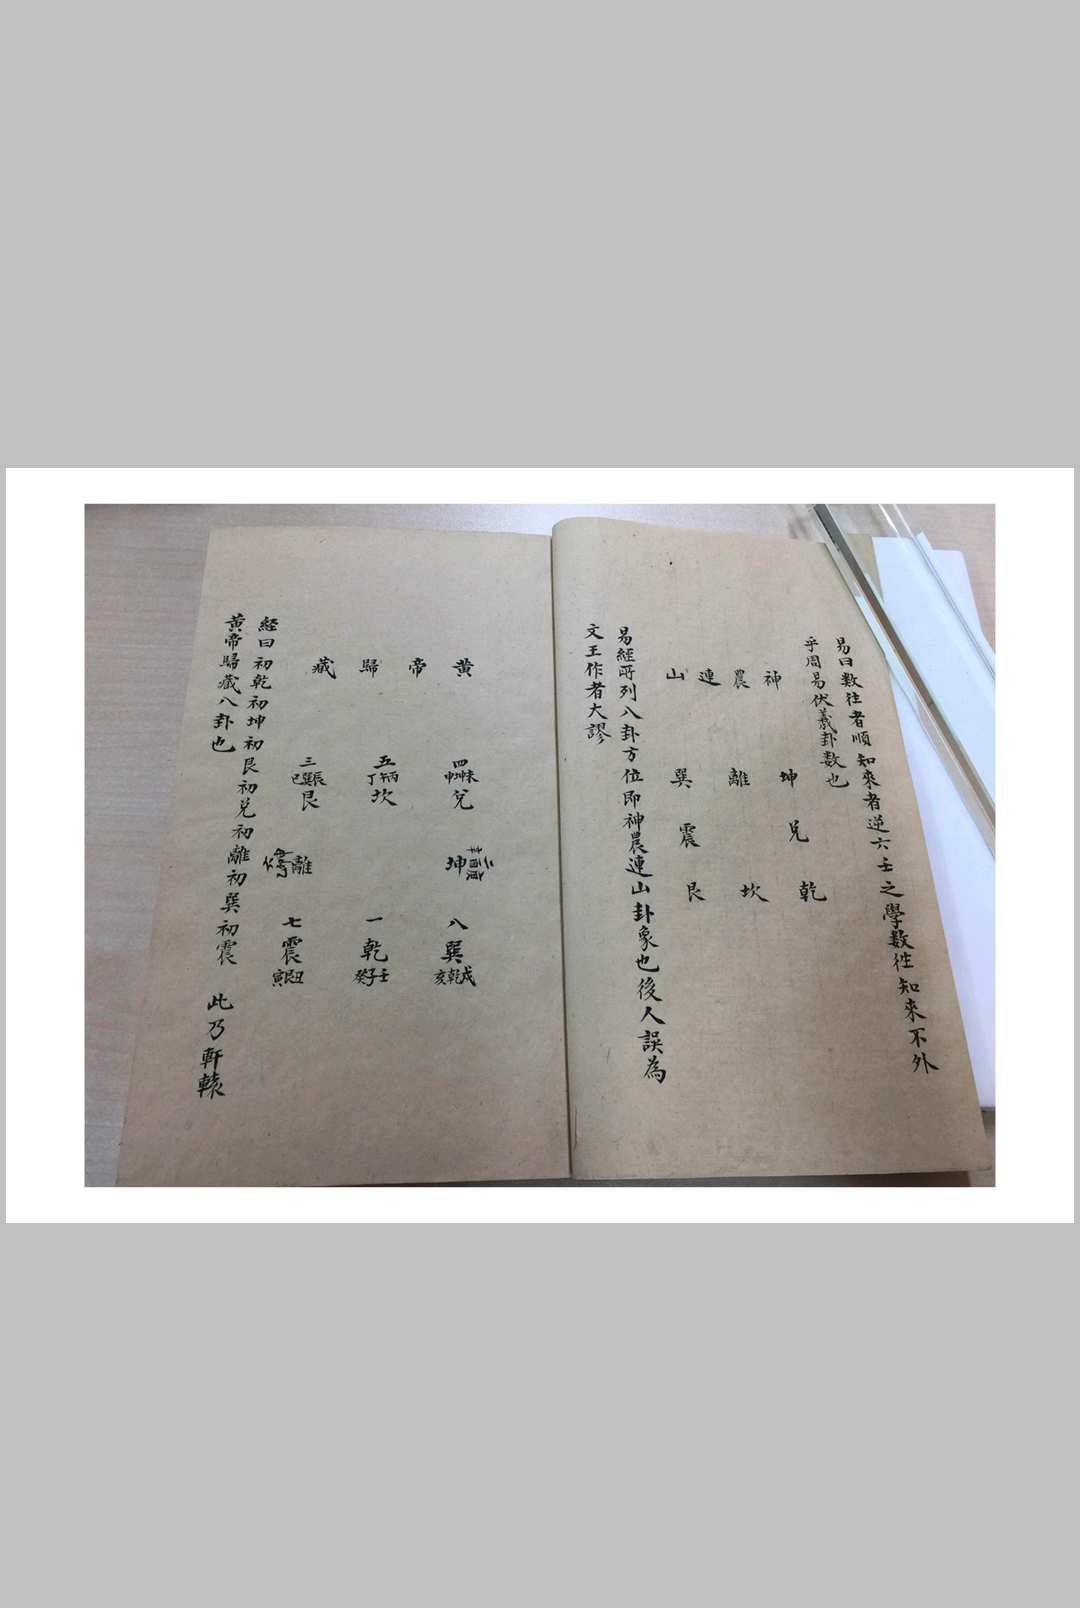 易曰數往者順知來者逆六壬之學數往知來不外
乎周易伏羲卦數也
神農連山
巽 離 坤
震 兌
艮 坎 乾
易經所列八卦方位即神農連山卦象也後人誤為
文王作者大謬
黃帝歸藏
四
未坤申
兌
五
丙午丁
坎
三
辰巽巳
艮
二
庚酉辛
坤
離
八
巽
戌乾亥
一
乾
壬子癸
七
震
丑艮寅
経曰初乾初坤初艮初兌初離初巽初震 此乃軒轅
黃帝歸藏八卦也